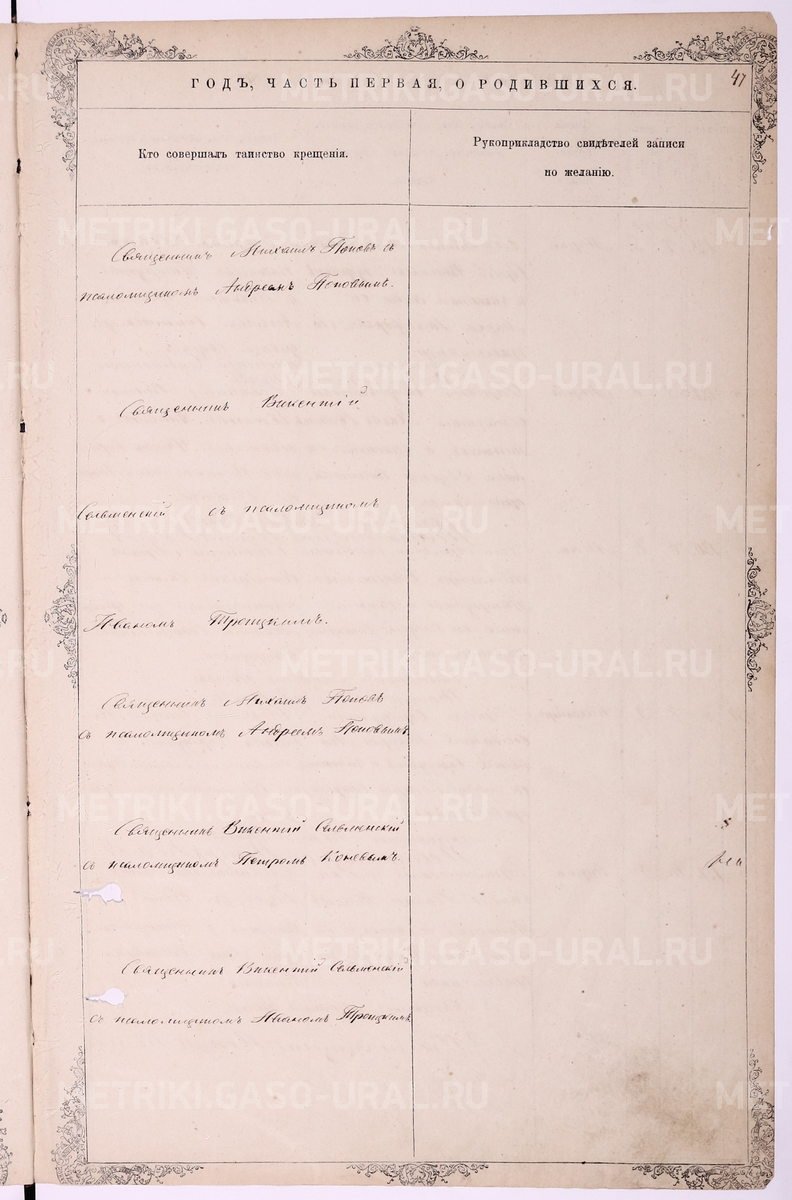 47
ГОДЪ, ЧАСТЬ ПЕРВАЯ, О РОДИВШИХСЯ.
Кто совершалъ таинство крещенія.
Рукоприкладство свидѣтелей записи
по желанію.
Священникъ Михаилъ Поповъ съ
псаломщикомъ Андреемъ Поповымъ.
Священникъ Викентій
Сельменскій съ псаломщикомъ
Иваномъ Троицкимъ.
Священникъ Михаилъ Поповъ
съ псаломщикомъ Андреемъ Поповымъ
Священникъ Викентій Сельменскій
съ псаломщикомъ Петромъ Коневымъ.
Священникъ Викентій Сельменскій
съ псаломщикомъ Иваномъ Троицкимъ
METRIKI.GASO-URAL.RU